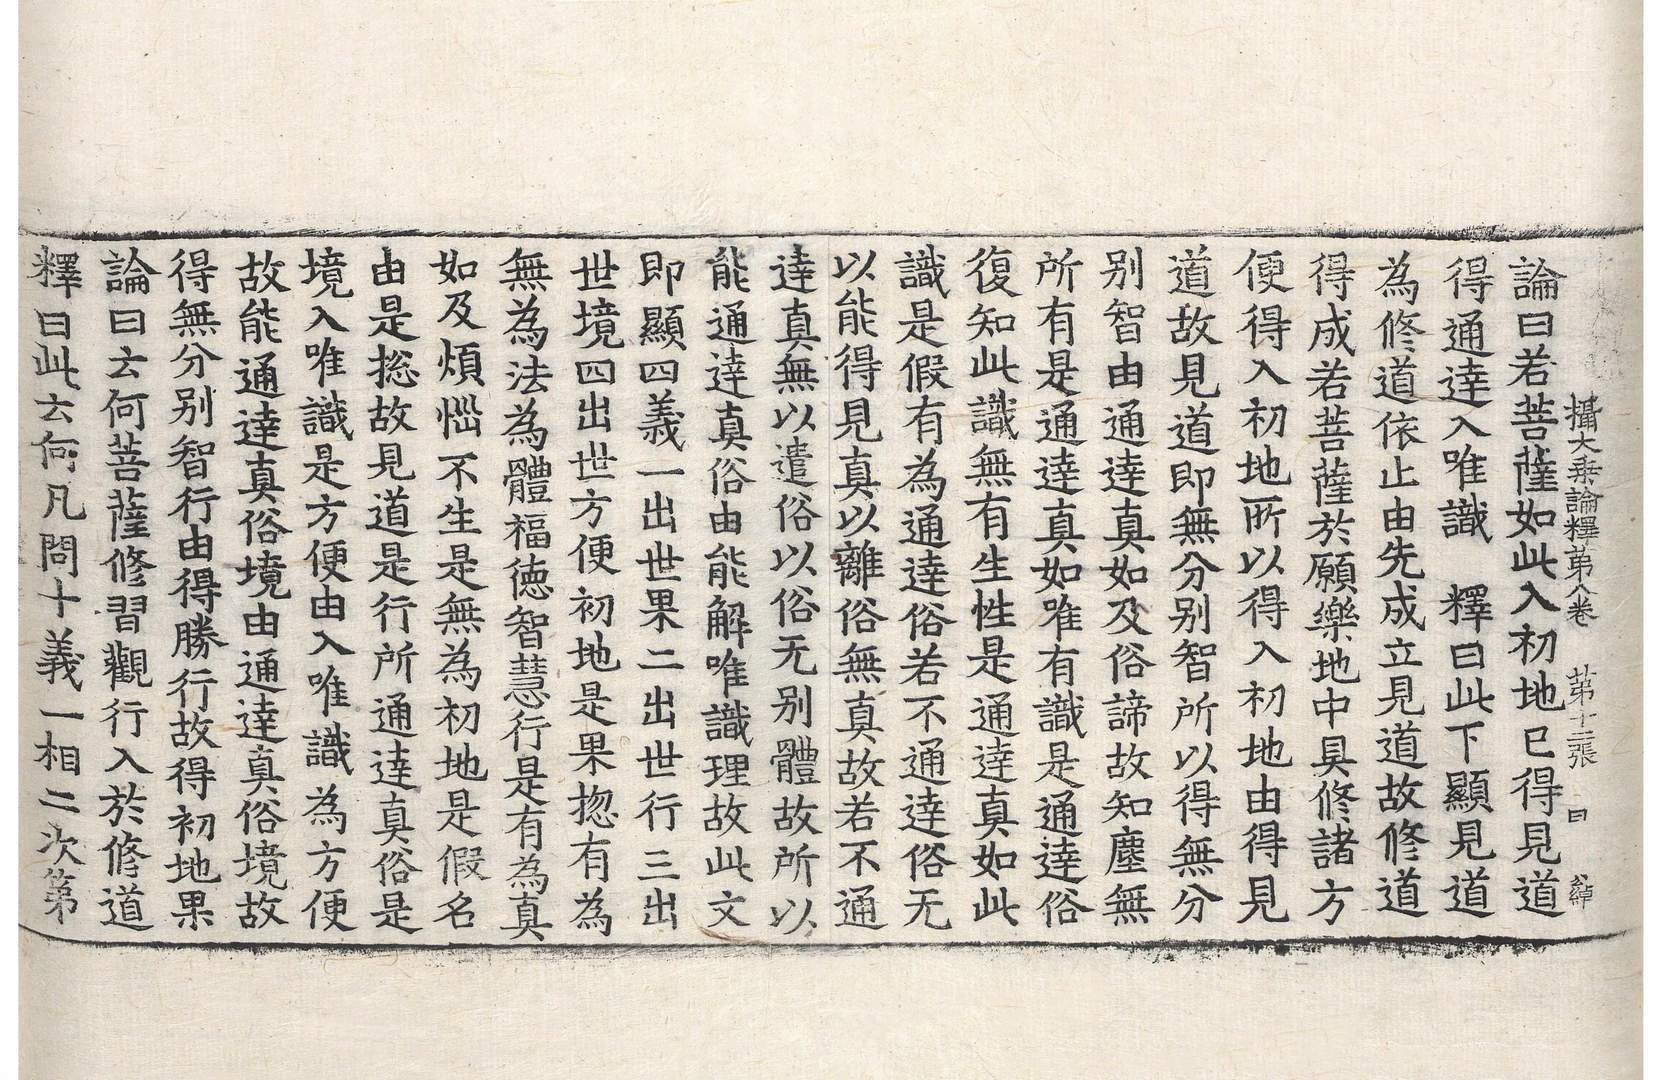 攝大乗論釋第八卷　第十二張　曰
論曰若菩薩如此入初地已得見道
得通達入唯識　釋曰此下顯見道
為修道依止由先成立見道故修道
得成若菩薩於願樂地中具修諸方
便得入初地所以得入初地由得見
道故見道即無分别智所以得無分
别智由通達真如及俗諦故知塵無
所有是通達真如唯有識是通達俗
復知此識無有生性是通達真如此
識是假有為通達俗若不通達俗无
以能得見真以離俗無真故若不通
達真無以遣俗以俗无别體故所以
能通達真俗由能解唯識理故此文
即顯四義一出世果二出世行三出
世境四出世方便初地是果揔有為
無為法為體福徳智慧行是有為真
如及煩惱不生是無為初地是假名
由是揔故見道是行所通達真俗是
境入唯識是方便由入唯識為方便
故能通達真俗境由通達真俗境故
得無分别智行由得勝行故得初地果
論曰云何菩薩修習觀行入於修道
釋曰此云何凡問十義一相二次第